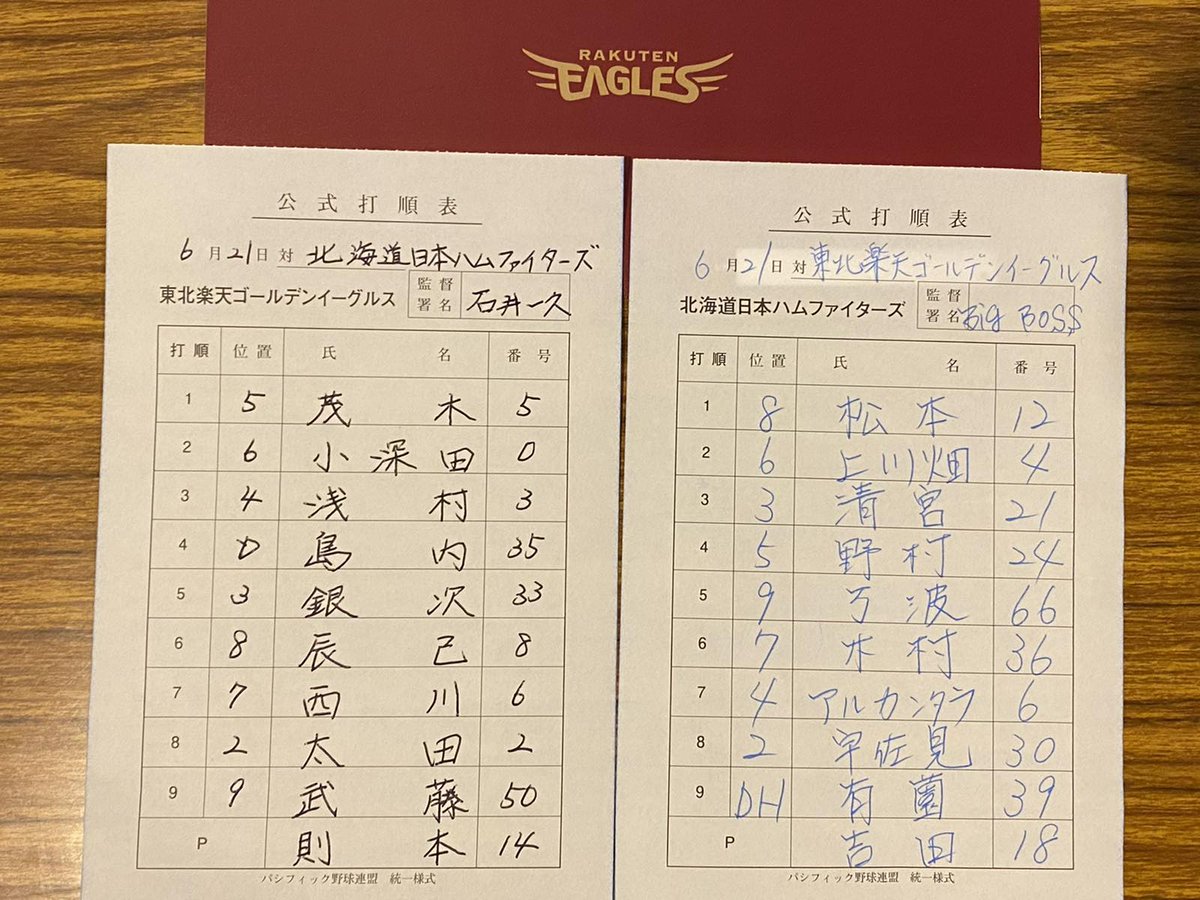 RAKUTEN
EAGLES
公式打順表
6月21日 対 北海道日本ハムファイターズ
東北楽天ゴールデンイーグルス 監督署名 石井一久
打順 位置 氏名 番号
1 5 茂木 5
2 6 小深田 0
3 4 浅村 3
4 D 島内 35
5 3 銀次 33
6 8 辰己 8
7 7 西川 6
8 2 太田 2
9 9 武藤 50
P 則本 14
パシフィック野球連盟 統一様式
公式打順表
6月21日 対 東北楽天ゴールデンイーグルス
北海道日本ハムファイターズ 監督署名 BIG BOSS
打順 位置 氏名 番号
1 8 松本 12
2 6 上川畑 4
3 3 清宮 21
4 5 野村 24
5 9 万波 66
6 7 木村 36
7 4 アルカンタラ 6
8 2 宇佐見 30
9 DH 有薗 39
P 吉田 18
パシフィック野球連盟 統一様式